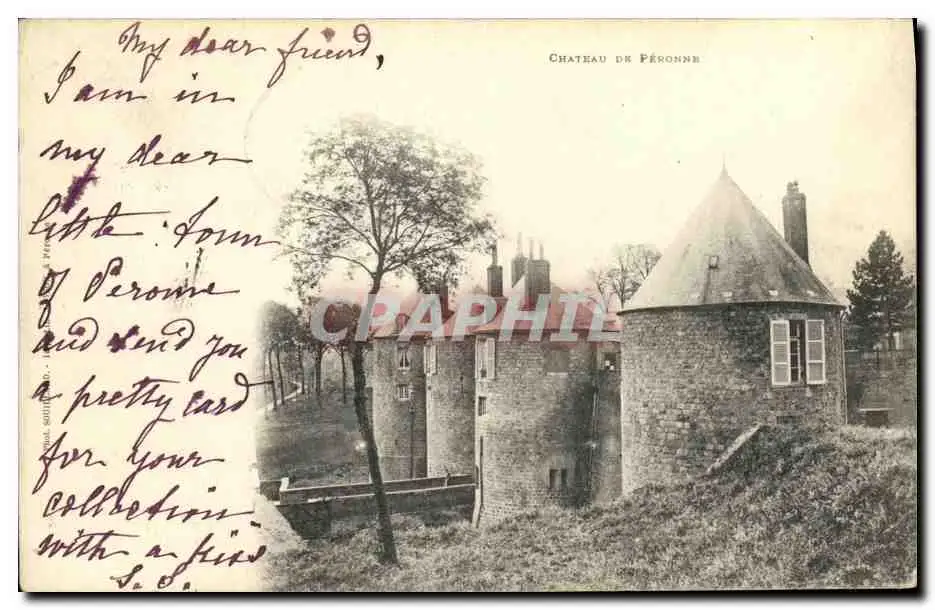 CHATEAU DE PÉRONNE
My dear friend,
I am in
my dear
little town
of Peronne
and send you
a pretty card
for your
collection
with a kiss
S. S.
CPAPHIL